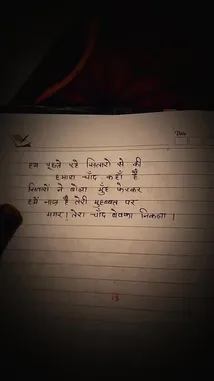 हम पूछते रहे सितारो से की
हमारा चाँद कहाँ है
सितारों ने बोला मुँह फेरकर
हमें नाज़ है तेरी मुहब्बत पर
मगर! तेरा चाँद बेवफा निकला ।